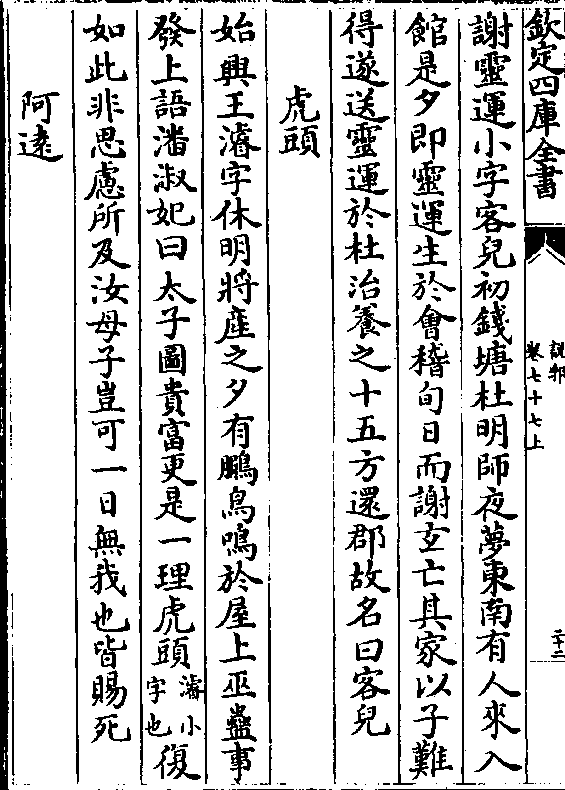 欽定四庫全書
說郛
卷七十七上
二十二
謝靈運小字客兒初錢塘杜明師夜夢東南有人來入
館是夕即靈運生於會稽旬日而謝玄亡其家以子難
得遂送靈運於杜治養之十五方還郡故名曰客兒
虎頭
始興王濬字休明將産之夕有鵩鳥鳴於屋上巫蠱事
發上語潘淑妃曰太子圖貴富更是一理虎頭濬小字也復
如此非思慮所及汝母子豈可一日無我也皆賜死
阿遠